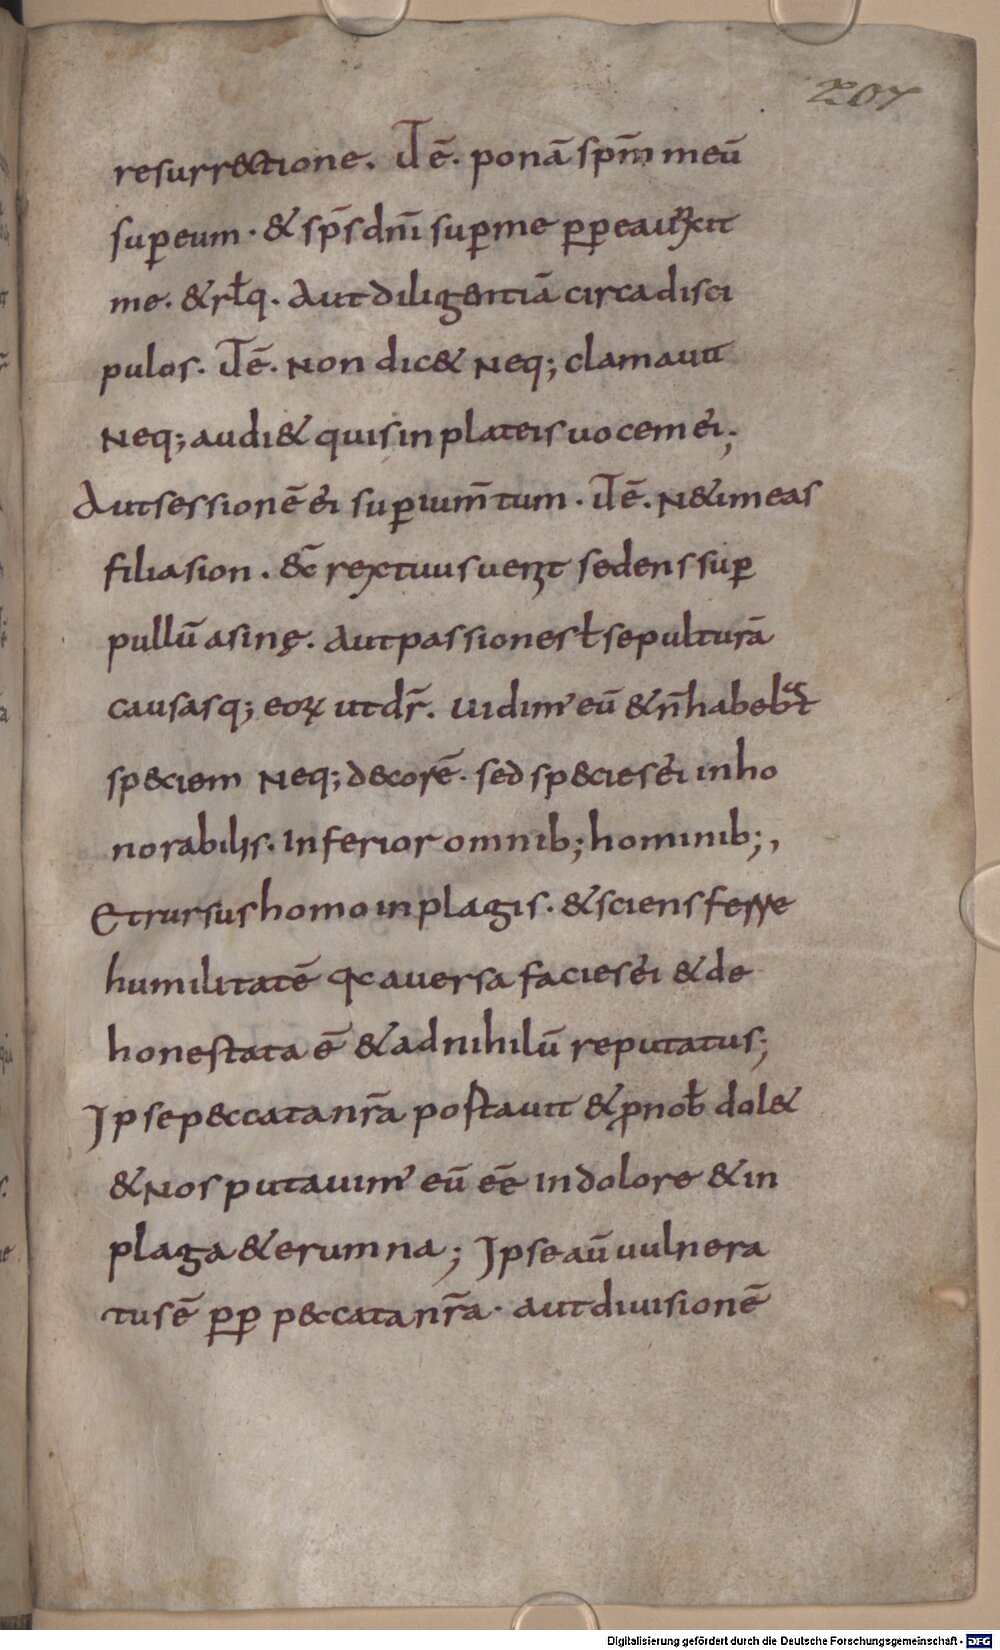 207
resurrectione. Id ē. ponā spm̄ meū
super eum. & sp̄s dn̄i super me ꝑꝑ ea unxit
me. & rl̄q. Aut diligentiā circa disci
pulos. Id ē. Non dic& Neq; clamauit
Neq; audi& quis in plateis uocem ei;
Aut sessionē ei suꝑ ium̄tum. Id ē. N& imeas
filia sion. ecc̄ rex tuus uenit sedens suꝑ
pullū asinę. Aut passiones ł sepulturā
causasq; eoꝝ ut dr̄. Uidim' eū & n̄ habebat
speciem Neq; decorē. sed species ei inho
norabilis. Inferior omnib; hominib;,
Et rursus homo in plagis. & sciens ferre
humilitatē qc auersa facies ei & de
honestata ē & ad nihilū reputatus;
Ipse peccata nr̄a postauit & ꝓ nob̄ dol&
& Nos putauim' eū eē in dolore & in
plaga & erumna; Ipse aū uulnera
tus ē ꝑꝑ peccata nr̄a. aut diuisionē
Digitalisierung gefördert durch die Deutsche Forschungsgemeinschaft - DFG